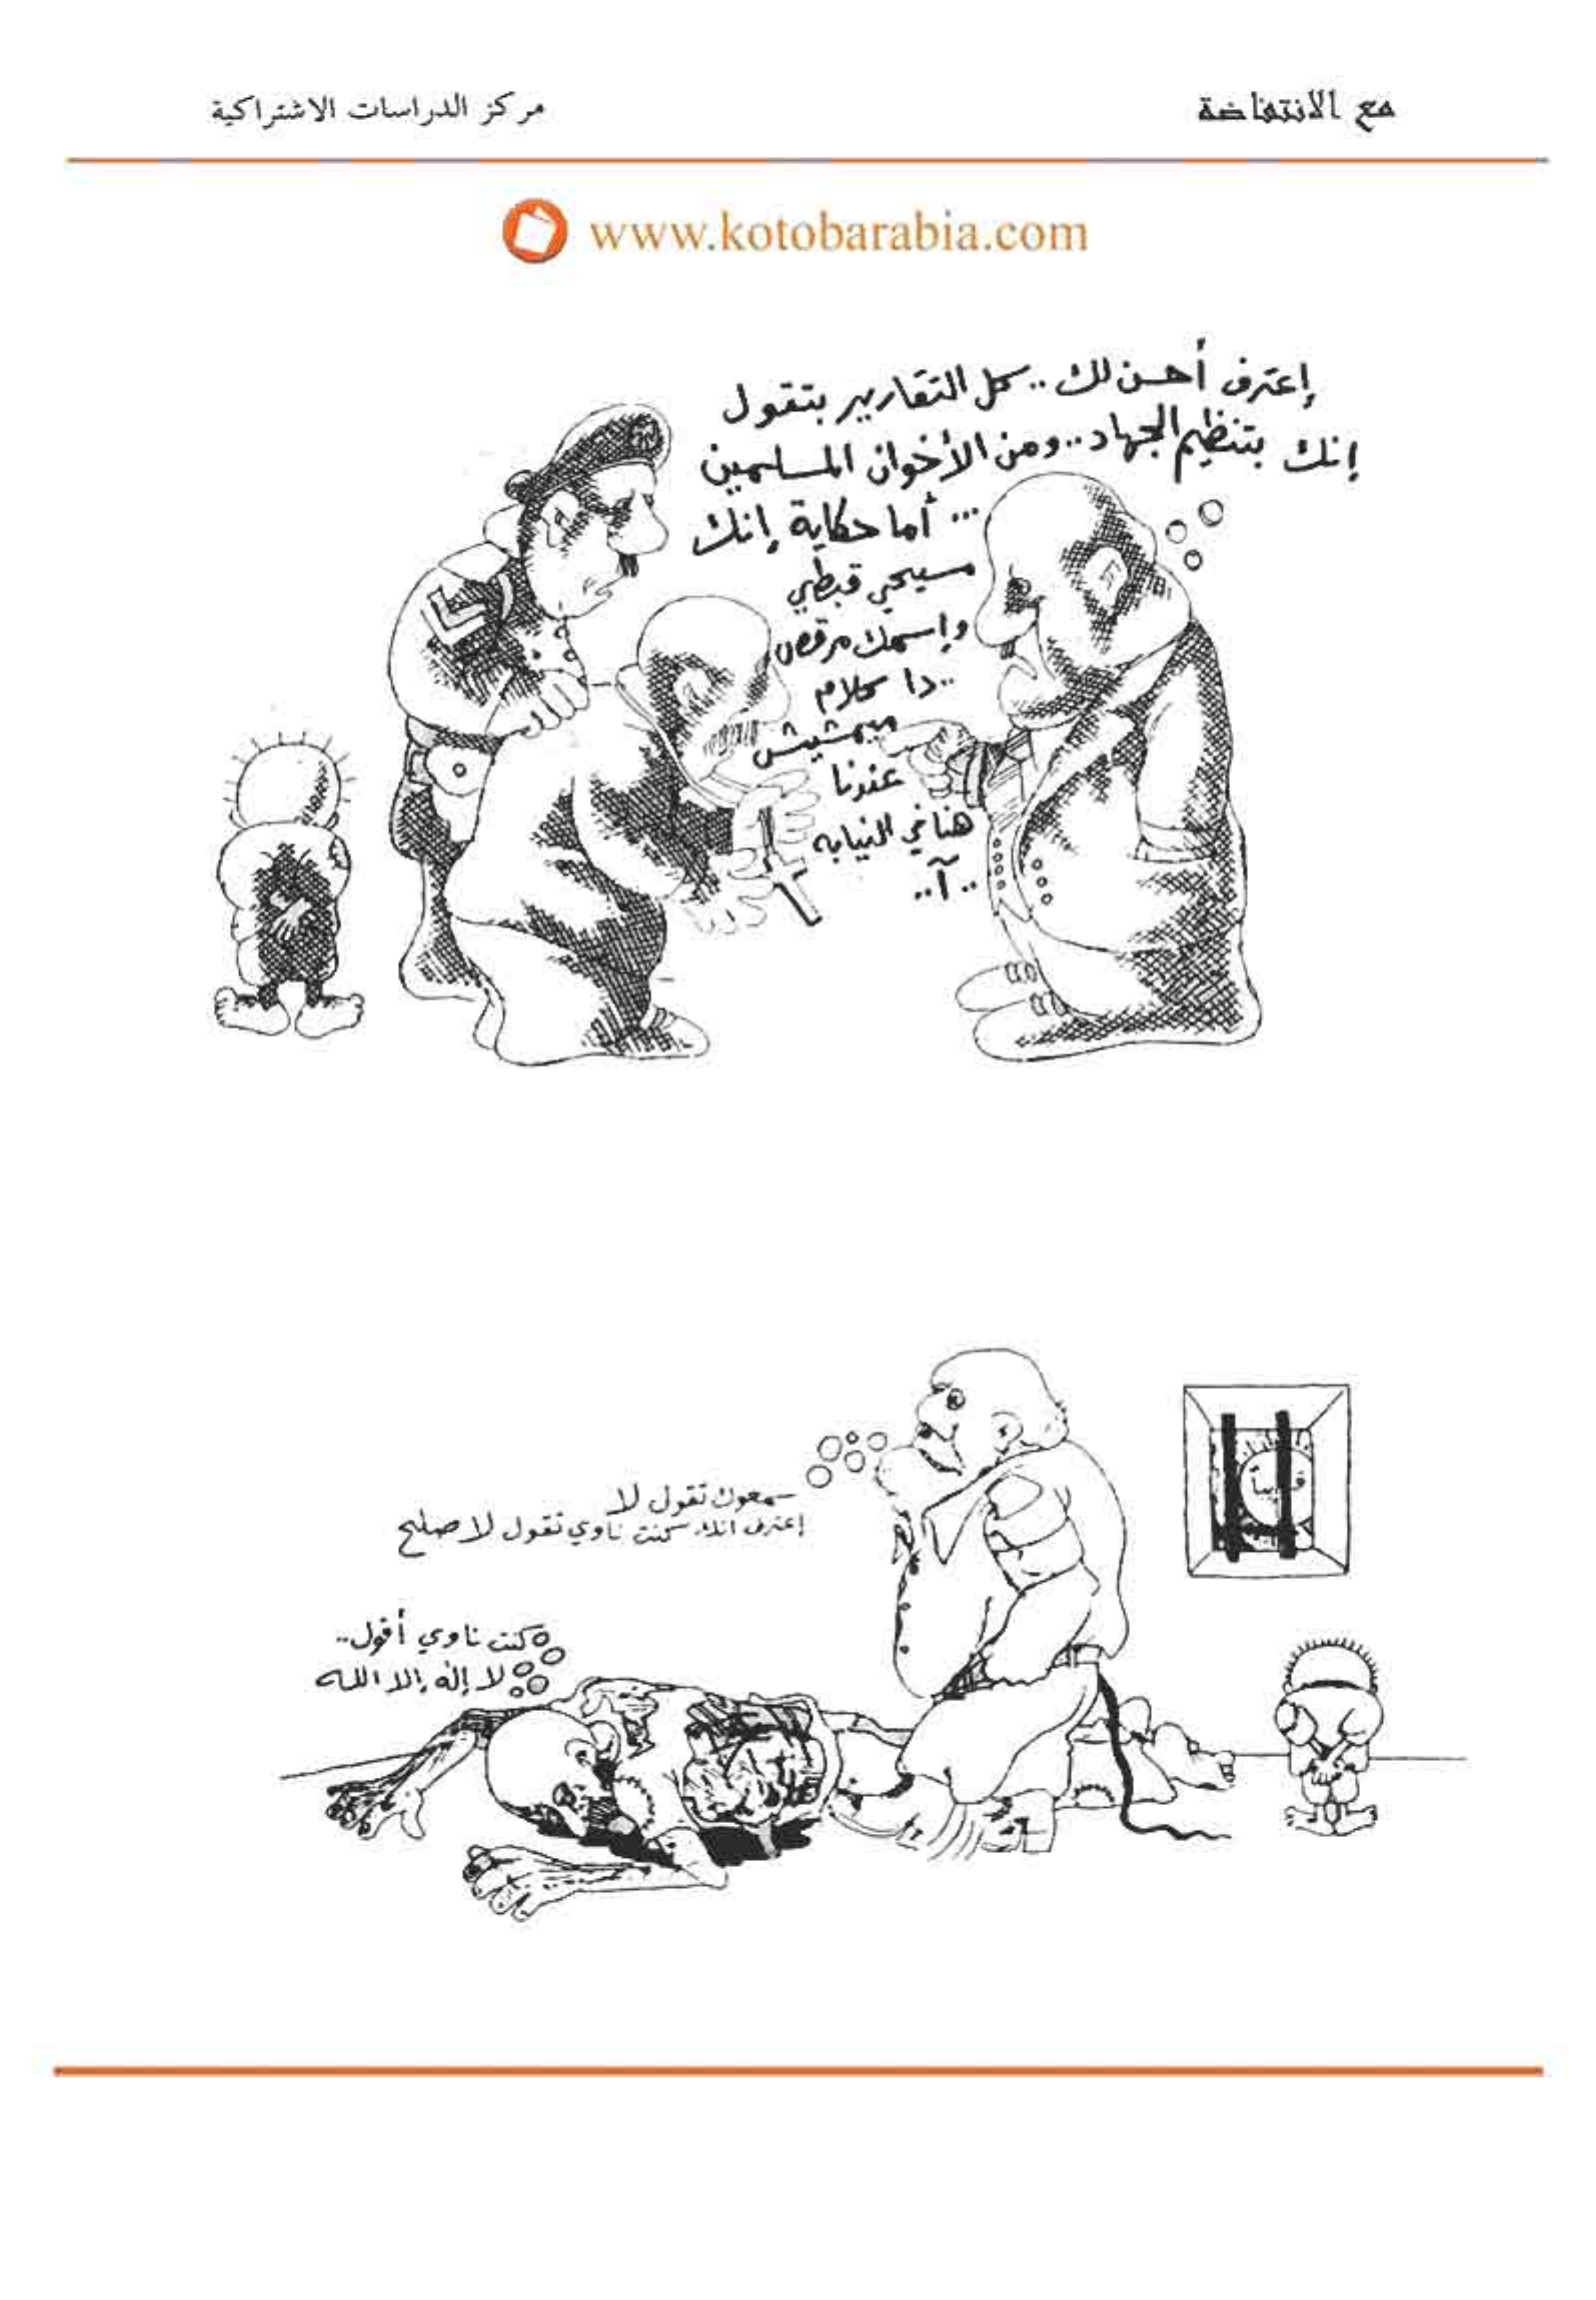 مع الانتفاضة
مركز الدراسات الاشتراكية
www.kotobarabia.com
إعترف أحسن لك .. كل التقارير بتقول
إنك بتنظيم الجهاد .. ومن الأخوان المسلمين
... أما حكاية إنك
مسيحي قبطي
وإسمك مرقص
.. دا كلام
ميمشيش
عندنا
هنا في النيابه
.. آ ..
سمعوك تقول لا
إعترف انك كنت ناوي تقول لا صلح
كنت ناوي أقول ..
لا إله إلا الله